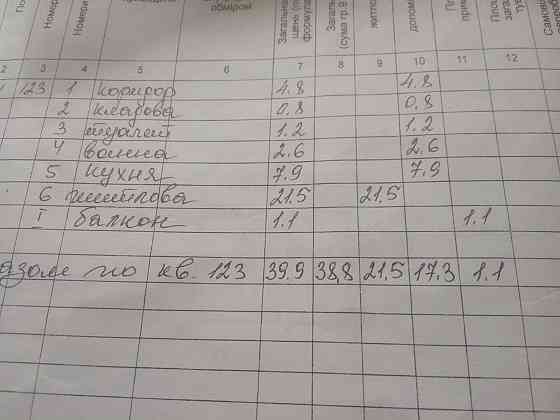 обміром
Номери
Номери
Загальна
формула
Загал
(сума гр.9
житло
допом
прим
Площ
зага
Самові
2 3 4 5 6 7 8 9 10 11 12
123 1 коридор 4.8 4.8
2 кладова 0.8 0.8
3 туалет 1.2 1.2
4 ванна 2.6 2.6
5 кухня 7.9 7.9
6 житлова 21.5 21.5
I балкон 1.1 1.1
азом по кв. 123 39.9 38,8 21.5 17.3 1.1